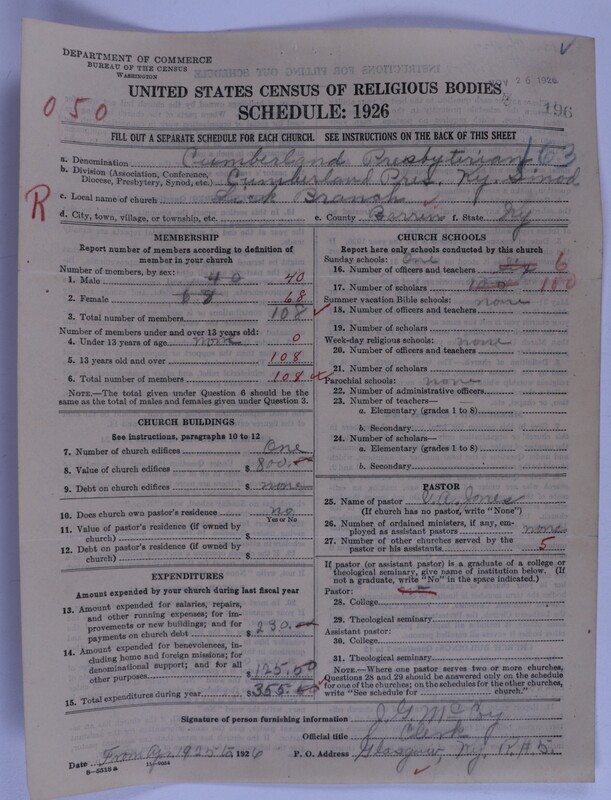 DEPARTMENT OF COMMERCE
BUREAU OF THE CENSUS
WASHINGTON
NOV 26 1926
UNITED STATES CENSUS OF RELIGIOUS BODIES
SCHEDULE: 1926
196
050
FILL OUT A SEPARATE SCHEDULE FOR EACH CHURCH. SEE INSTRUCTIONS ON THE BACK OF THIS SHEET
a. Denomination Cumberland Presbyterian 163
b. Division (Association, Conference, Diocese, Presbytery, Synod, etc.) Cumberland Pres. Ky. Sinod
R
c. Local name of church Branch
d. City, town, village, or township, etc. e. County Barren f. State Ky
MEMBERSHIP
Report number of members according to definition of
member in your church
Number of members, by sex:
1. Male 40 40
2. Female 68 68
3. Total number of members 108
Number of members under and over 13 years old:
4. Under 13 years of age none 0
5. 13 years old and over 108
6. Total number of members 108
NOTE.—The total given under Question 6 should be
same as the total of males and females given under Question 3.
CHURCH BUILDINGS
See instructions, paragraphs 10 to 12
7. Number of church edifices One
8. Value of church edifices $ 800.
9. Debt on church edifices $ none
10. Does church own pastor's residence? no
Yes or No
11. Value of pastor's residence (if owned by
church) $
12. Debt on pastor's residence (if owned by
church) $
EXPENDITURES
Amount expended by your church during last fiscal year
13. Amount expended for salaries, repairs,
and other running expenses; for im-
provements or new buildings; and for
payments on church debt $ 230.
14. Amount expended for benevolences, in-
cluding home and foreign missions; for
denominational support; and for all
other purposes $ 125.50
15. Total expenditures during year $ 355.
CHURCH SCHOOLS
Report here only schools conducted by this church
Sunday schools: One
16. Number of officers and teachers 6
17. Number of scholars 100 100
Summer vacation Bible schools: none
18. Number of officers and teachers
19. Number of scholars
Week-day religious schools: none
20. Number of officers and teachers
21. Number of scholars
Parochial schools: none
22. Number of administrative officers
23. Number of teachers—
a. Elementary (grades 1 to 8)
b. Secondary
24. Number of scholars—
a. Elementary (grades 1 to 8)
b. Secondary
PASTOR
25. Name of pastor A. Jones
(If church has no pastor, write "None")
26. Number of ordained ministers, if any, em-
ployed as assistant pastors none
27. Number of other churches served by the
pastor or his assistants 5
If pastor (or assistant pastor) is a graduate of a college or
theological seminary, give name of institution below. (If
not a graduate, write "No" in the space indicated.)
Pastor:
28. College
29. Theological seminary
Assistant pastor:
30. College
31. Theological seminary
NOTE.—Where one pastor serves two or more churches,
Questions 28 and 29 should be answered only on the schedule
for one of the churches; on the schedules for the other churches,
write "See schedule for church."
Signature of person furnishing information J. G. McCoy
Official title Clerk
Date From Apr, 1925 to 1926 P. O. Address Glasgow, Ky.
8-5518a